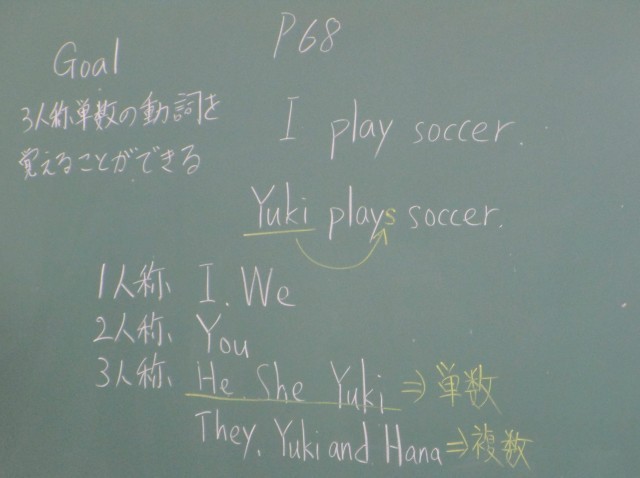 P68
Goal
3人称単数の動詞を
覚えることができる
I play soccer.
Yuki plays soccer.
1人称、I. We
2人称、You
3人称、He She Yuki ⇒ 単数
They. Yuki and Hana ⇒ 複数